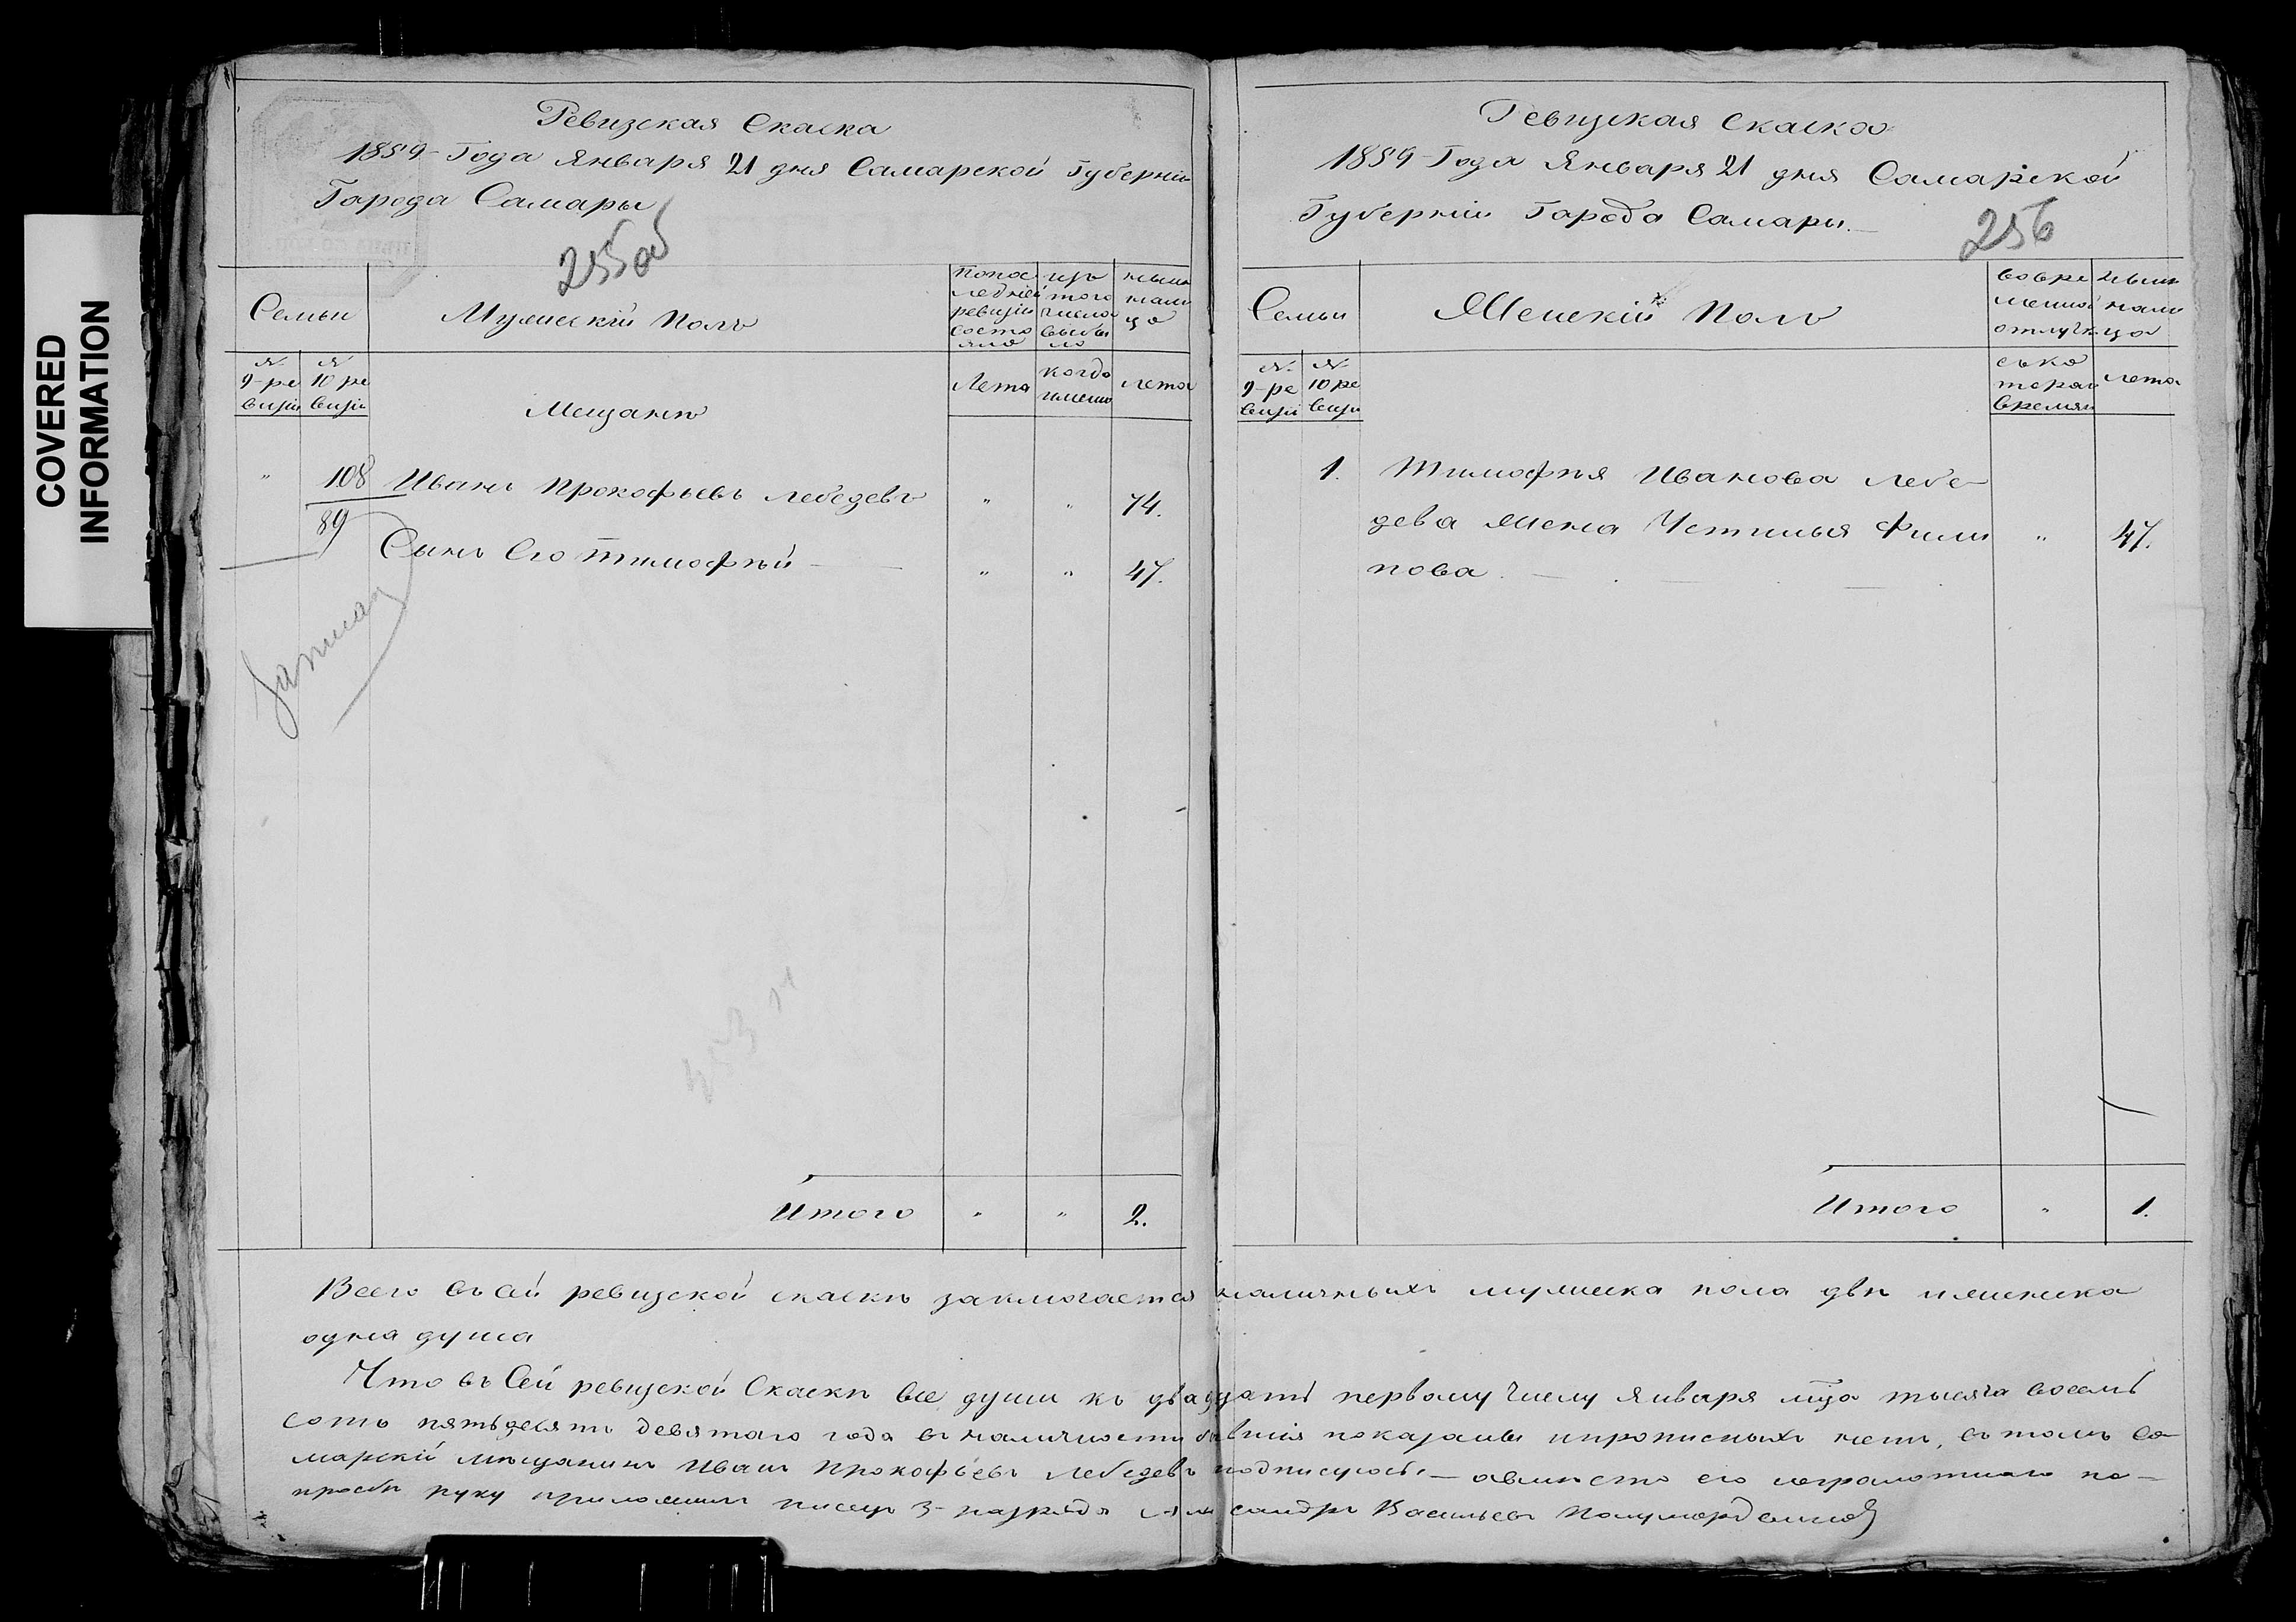 COVERED
INFORMATION
Ревизская Скаска
1859 Года Января 21 дня Самарской Губерніи
Города Самары
255об
Семьи
Мужескій Полъ
Попос
ледней
ревизіи
состо
яло
изъ
того
числа
выбы
ло
ныне
нали
цо
№
9-ре
визіи
№
10 ре
визіи
Мещанъ
Лета
когда
имено
лета
" 108 Иванъ Прокофьевъ Лебедевъ " " 74.
89
Сынъ Его Тимофѣй " " 47.
Итого " " 2.
Ревизская Скаска
1859 Года Января 21 дня Самарской
Губерніи Города Самары.
256
Семьи
Женскій Полъ
вовре
менной
отлучке
ныне
нали
цо
№
9-ре
визіи
№
10 ре
визіи
съко
тораго
времян
лета
1. Тимофѣя Иванова Лебе
дева Жена Устинья Фили " 47.
пова
Итого " 1.
Всего въ сей ревизской скаскѣ заключается наличныхъ мужеска пола двѣ иженска
одна душа
Что въ Сей ревизской Скаскѣ все души къ двадцать первому числу Января мца тысяча восемь
сотъ пятьдесятъ девятаго года въ наличности бывшія показаны ипрописныхъ нетъ, въ томъ Са
марскій мѣщанинъ Иванъ Прокофьевъ Лебедевъ подписуюсь авместо его неграмотнаго по
просьбѣ руку приложилъ писецъ 3 разряда Александръ Васильевъ